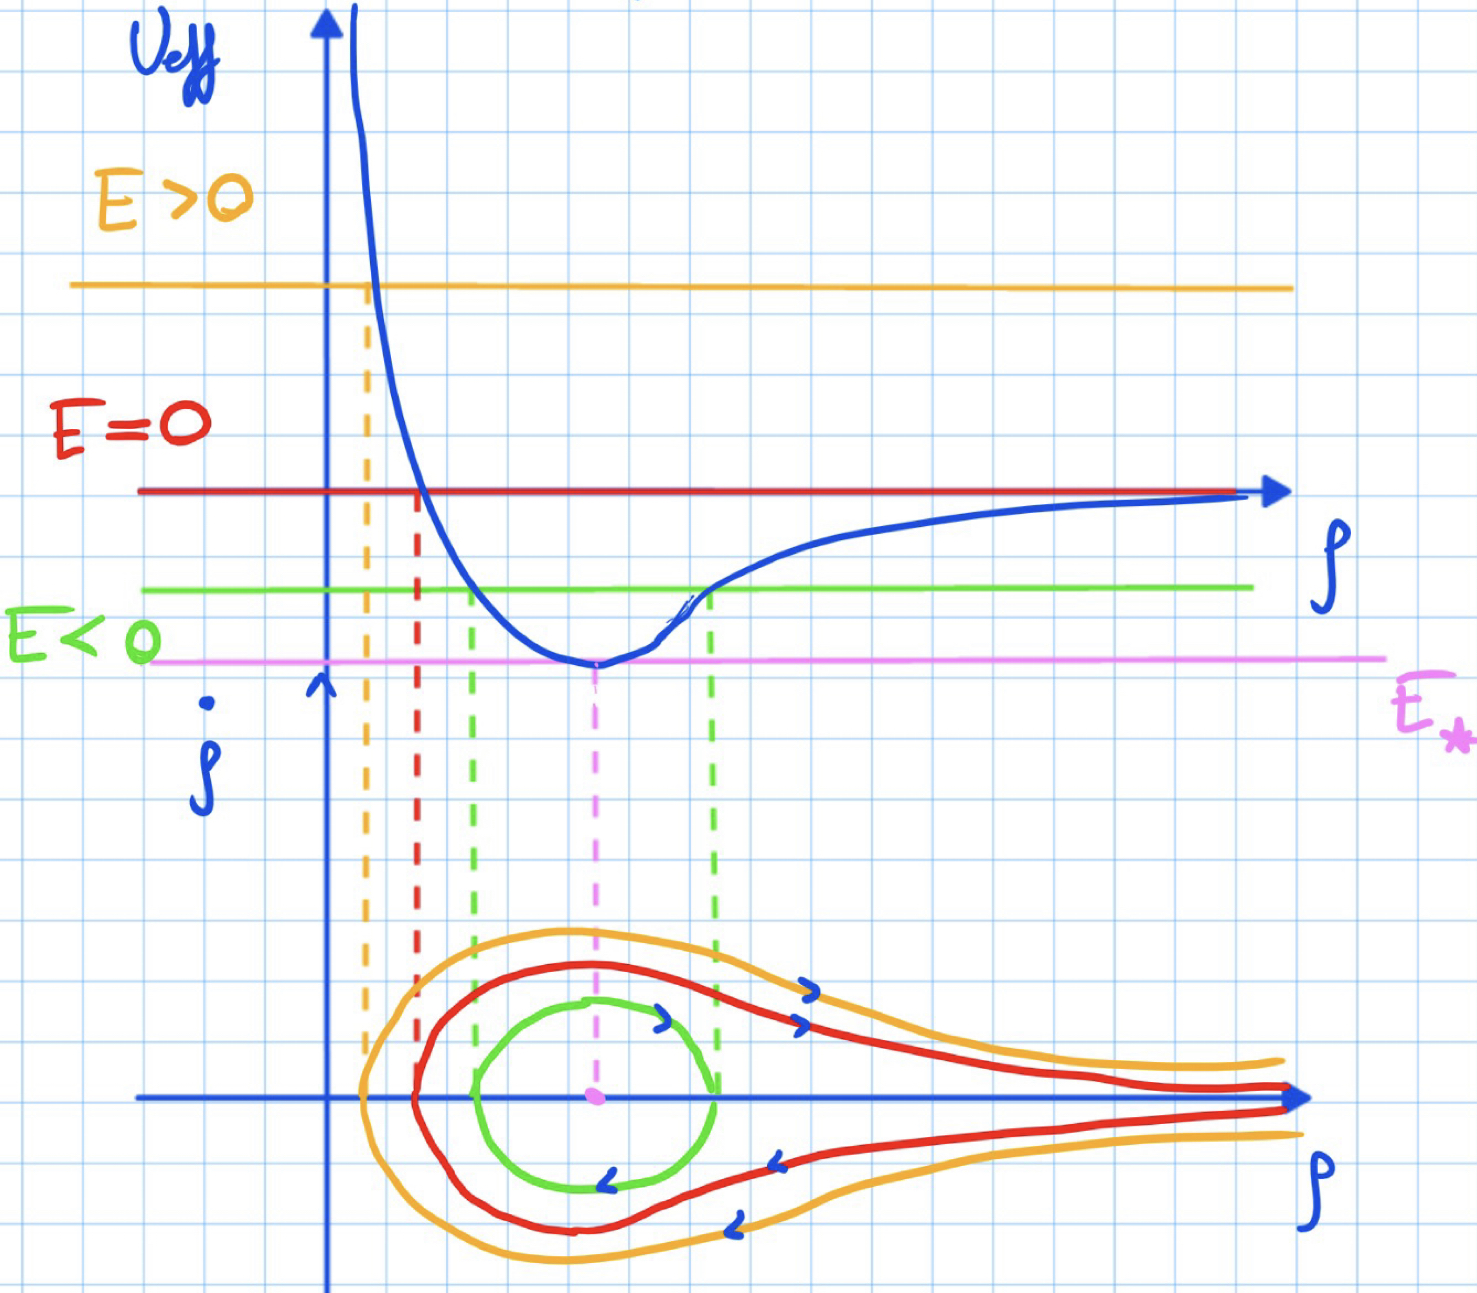 Ueff
E > 0
E = 0
ρ
E < 0
E⋆
ρ̇
ρ